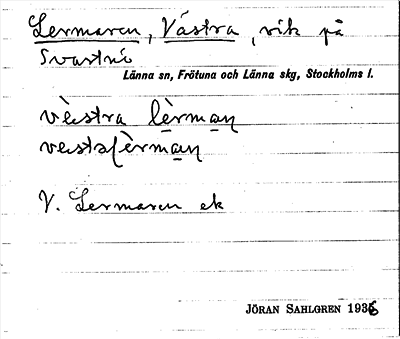 Lermaren, Västra, vik på
Svartnö
Länna sn, Frötuna och Länna skg, Stockholms l.
vèstra lèrman
V. Lermaren ek
JÖRAN SAHLGREN 1936